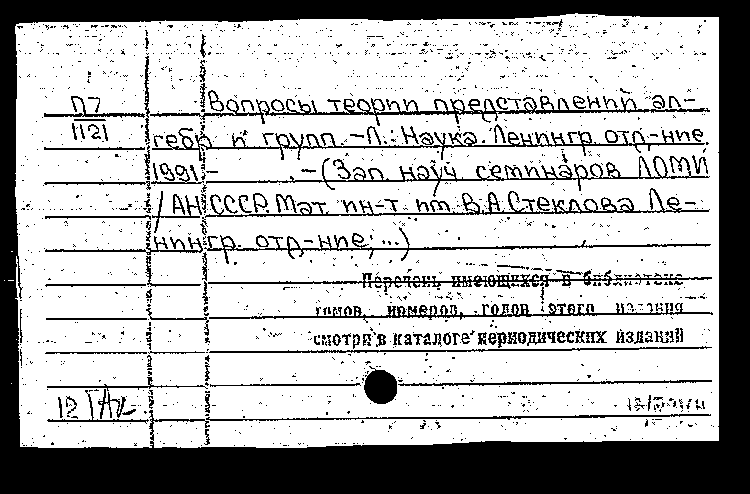 П7
1121
Вопросы теории представлений ал-
гебр и групп. -Л.: Наука. Ленингр. отд-ние,
1991 - . -(Зап. науч. семинаров ЛОМИ
/ АН СССР. Мат. ин-т им. В.А. Стеклова. Ле-
нингр. отд-ние; ...)
Перечень имеющихся в библиотеке
томов, номеров, годов этого издания
смотри в каталоге периодических изданий
12